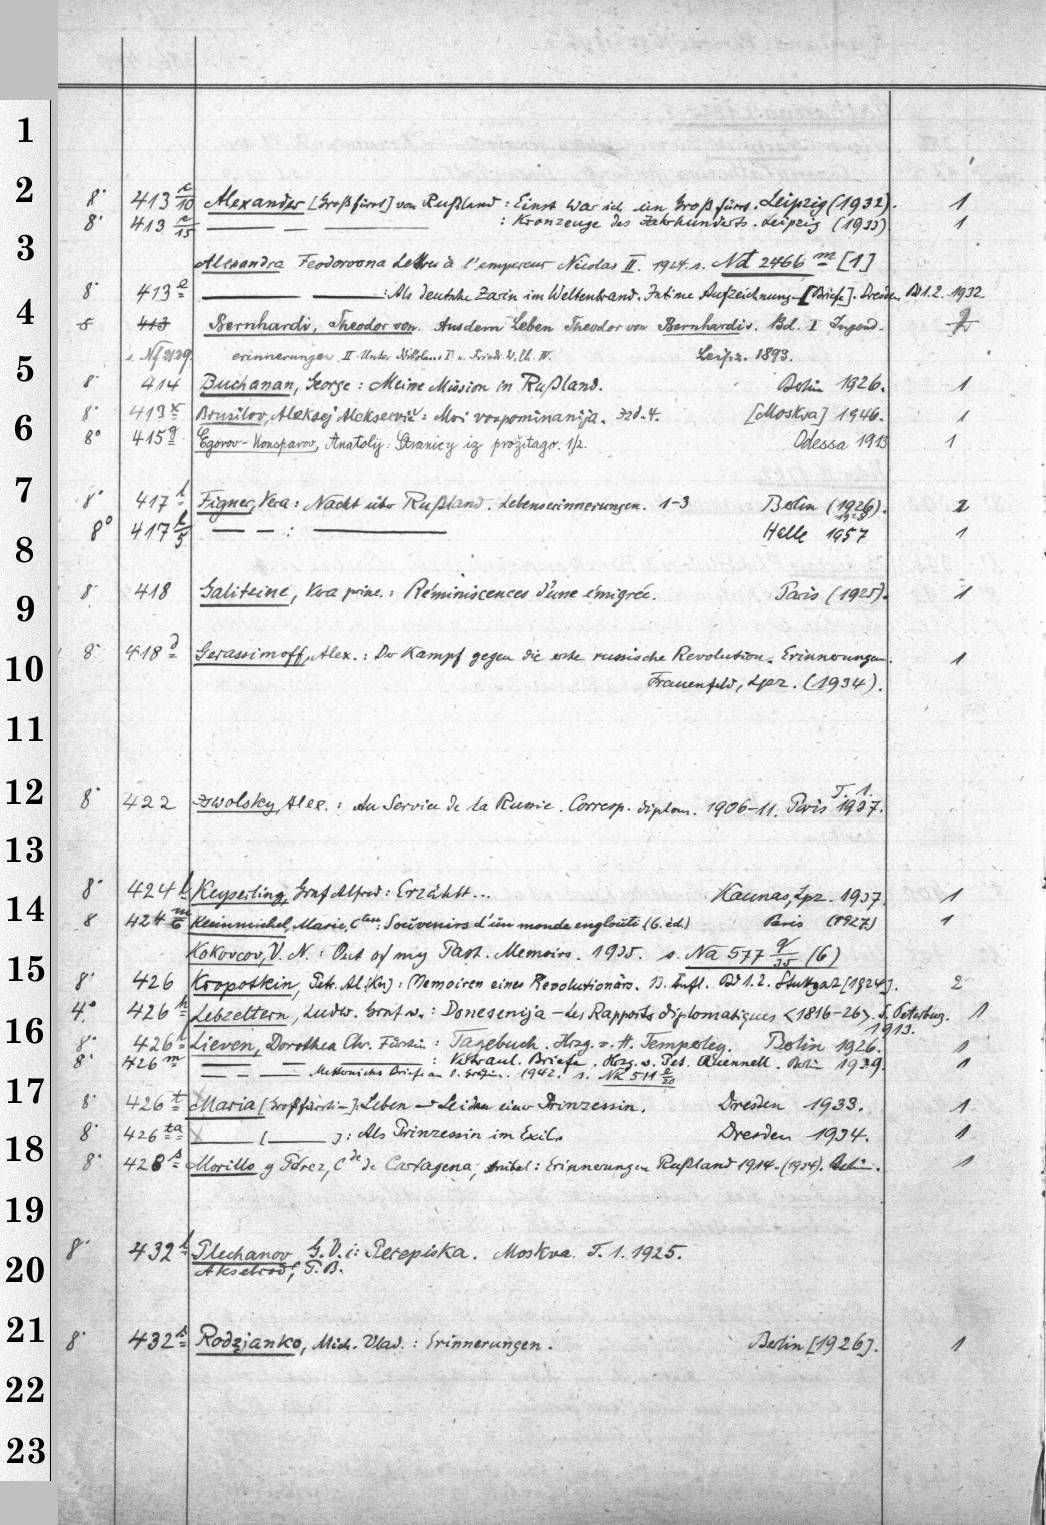 1
2
8° 413 c/10 Alexander [Großfürst] von Rußland: Einst war ich ein Großfürst. Leipzig (1932). 1
8° 413 c/15 — — — : Kronzeuge des Jahrhunderts. Leipzig (1933) 1
3
Alexandra Feodorovna Lettres à l'empereur Nicolas II. 1924. s. Nd 2466 m [1]
8° 413 e — — : Als deutsche Zarin im Weltenbrand. Intime Aufzeichnung. [Briefe]. Dresden Bd 1.2. 1932
4
8 413 Bernhardi, Theodor von. Aus dem Leben Theodor von Bernhardis. Bd. I Jugend-
s. Nf 2129 erinnerungen II Unter Nikolaus I u. Friedr. W. IV. Leipz. 1893.
5
8° 414 Buchanan, George: Meine Mission in Rußland. Berlin 1926. 1
8° 413 x Brusilov, Aleksej Alekseevič: Moi vospominanija. Izd. 4. [Moskva] 1946. 1
6
8° 415 g Egorov-Konsparov, Anatolij: Stranicy iz prožitago. 1/2. Odessa 1913 1
7
8° 417 l Figner, Vera: Nacht über Rußland. Lebenserinnerungen. 1-3 Berlin (1926). 2
8° 417 l/5 — — : — Halle 1957 1
8
9
8° 418 Galitzine, Vera princ.: Réminiscences d'une émigrée. Paris (1925). 1
10
8° 418 d Gerassimoff, Alex.: Der Kampf gegen die erste russische Revolution. Erinnerungen. 1
Frauenfeld, Lpz. (1934).
11
12
8° 422 Iswolsky, Alex.: Au Service de la Russie. Corresp. diplom. 1906-11. Paris T. 1. 1937.
13
14
8° 424 l Keyserling, Graf Alfred: Erzählt... Kaunas, Lpz. 1937 1
8 424 m/6 Kleinmichel, Marie, Ctesse: Souvenirs d'un monde englouti (6. éd.) Paris (1927) 1
15
Kokovcov, V. N.: Out of my Past. Memoirs. 1935. s. Na 577 q/35 (6)
8° 426 Kropotkin, Petr. Al. (Kn): Memoiren eines Revolutionärs. 13. Aufl. Bd 1.2. Stuttgart [1924]. 2
16
4° 426 h Lebzeltern, Ludw. Graf v.: Donesenija - Les Rapports diplomatiques <1816-26>. S. Peterburg. 1913. 1
8° 426 Lieven, Dorothea Chr. Fürstin: Tagebuch. Hrsg. v. H. Temperley. Berlin 1926. 1
8° 426 m — — — : Vertraul. Briefe. Hrsg. v. Pet. Quennell. Berlin 1939. 1
— — Metternichs Briefe an d. Gräfin. 1942. s. NK 511 e/20
17
8° 426 t Maria [Großfürstin]: Leben u. Leiden einer Prinzessin. Dresden 1933. 1
18
8° 426 ta — [ — ]: Als Prinzessin im Exil. Dresden 1934. 1
8° 428 s Morillo y Pérez, Cde de Cartagena, Anibel: Erinnerungen Rußland 1914. (1934). Berlin. 1
19
20
8° 432 l Plechanov, G. V. i: Perepiska. Moskva. T. 1. 1925.
Akselrod, P. B.
21
8° 432 s Rodzjanko, Mich. Vlad.: Erinnerungen. Berlin [1926]. 1
22
23